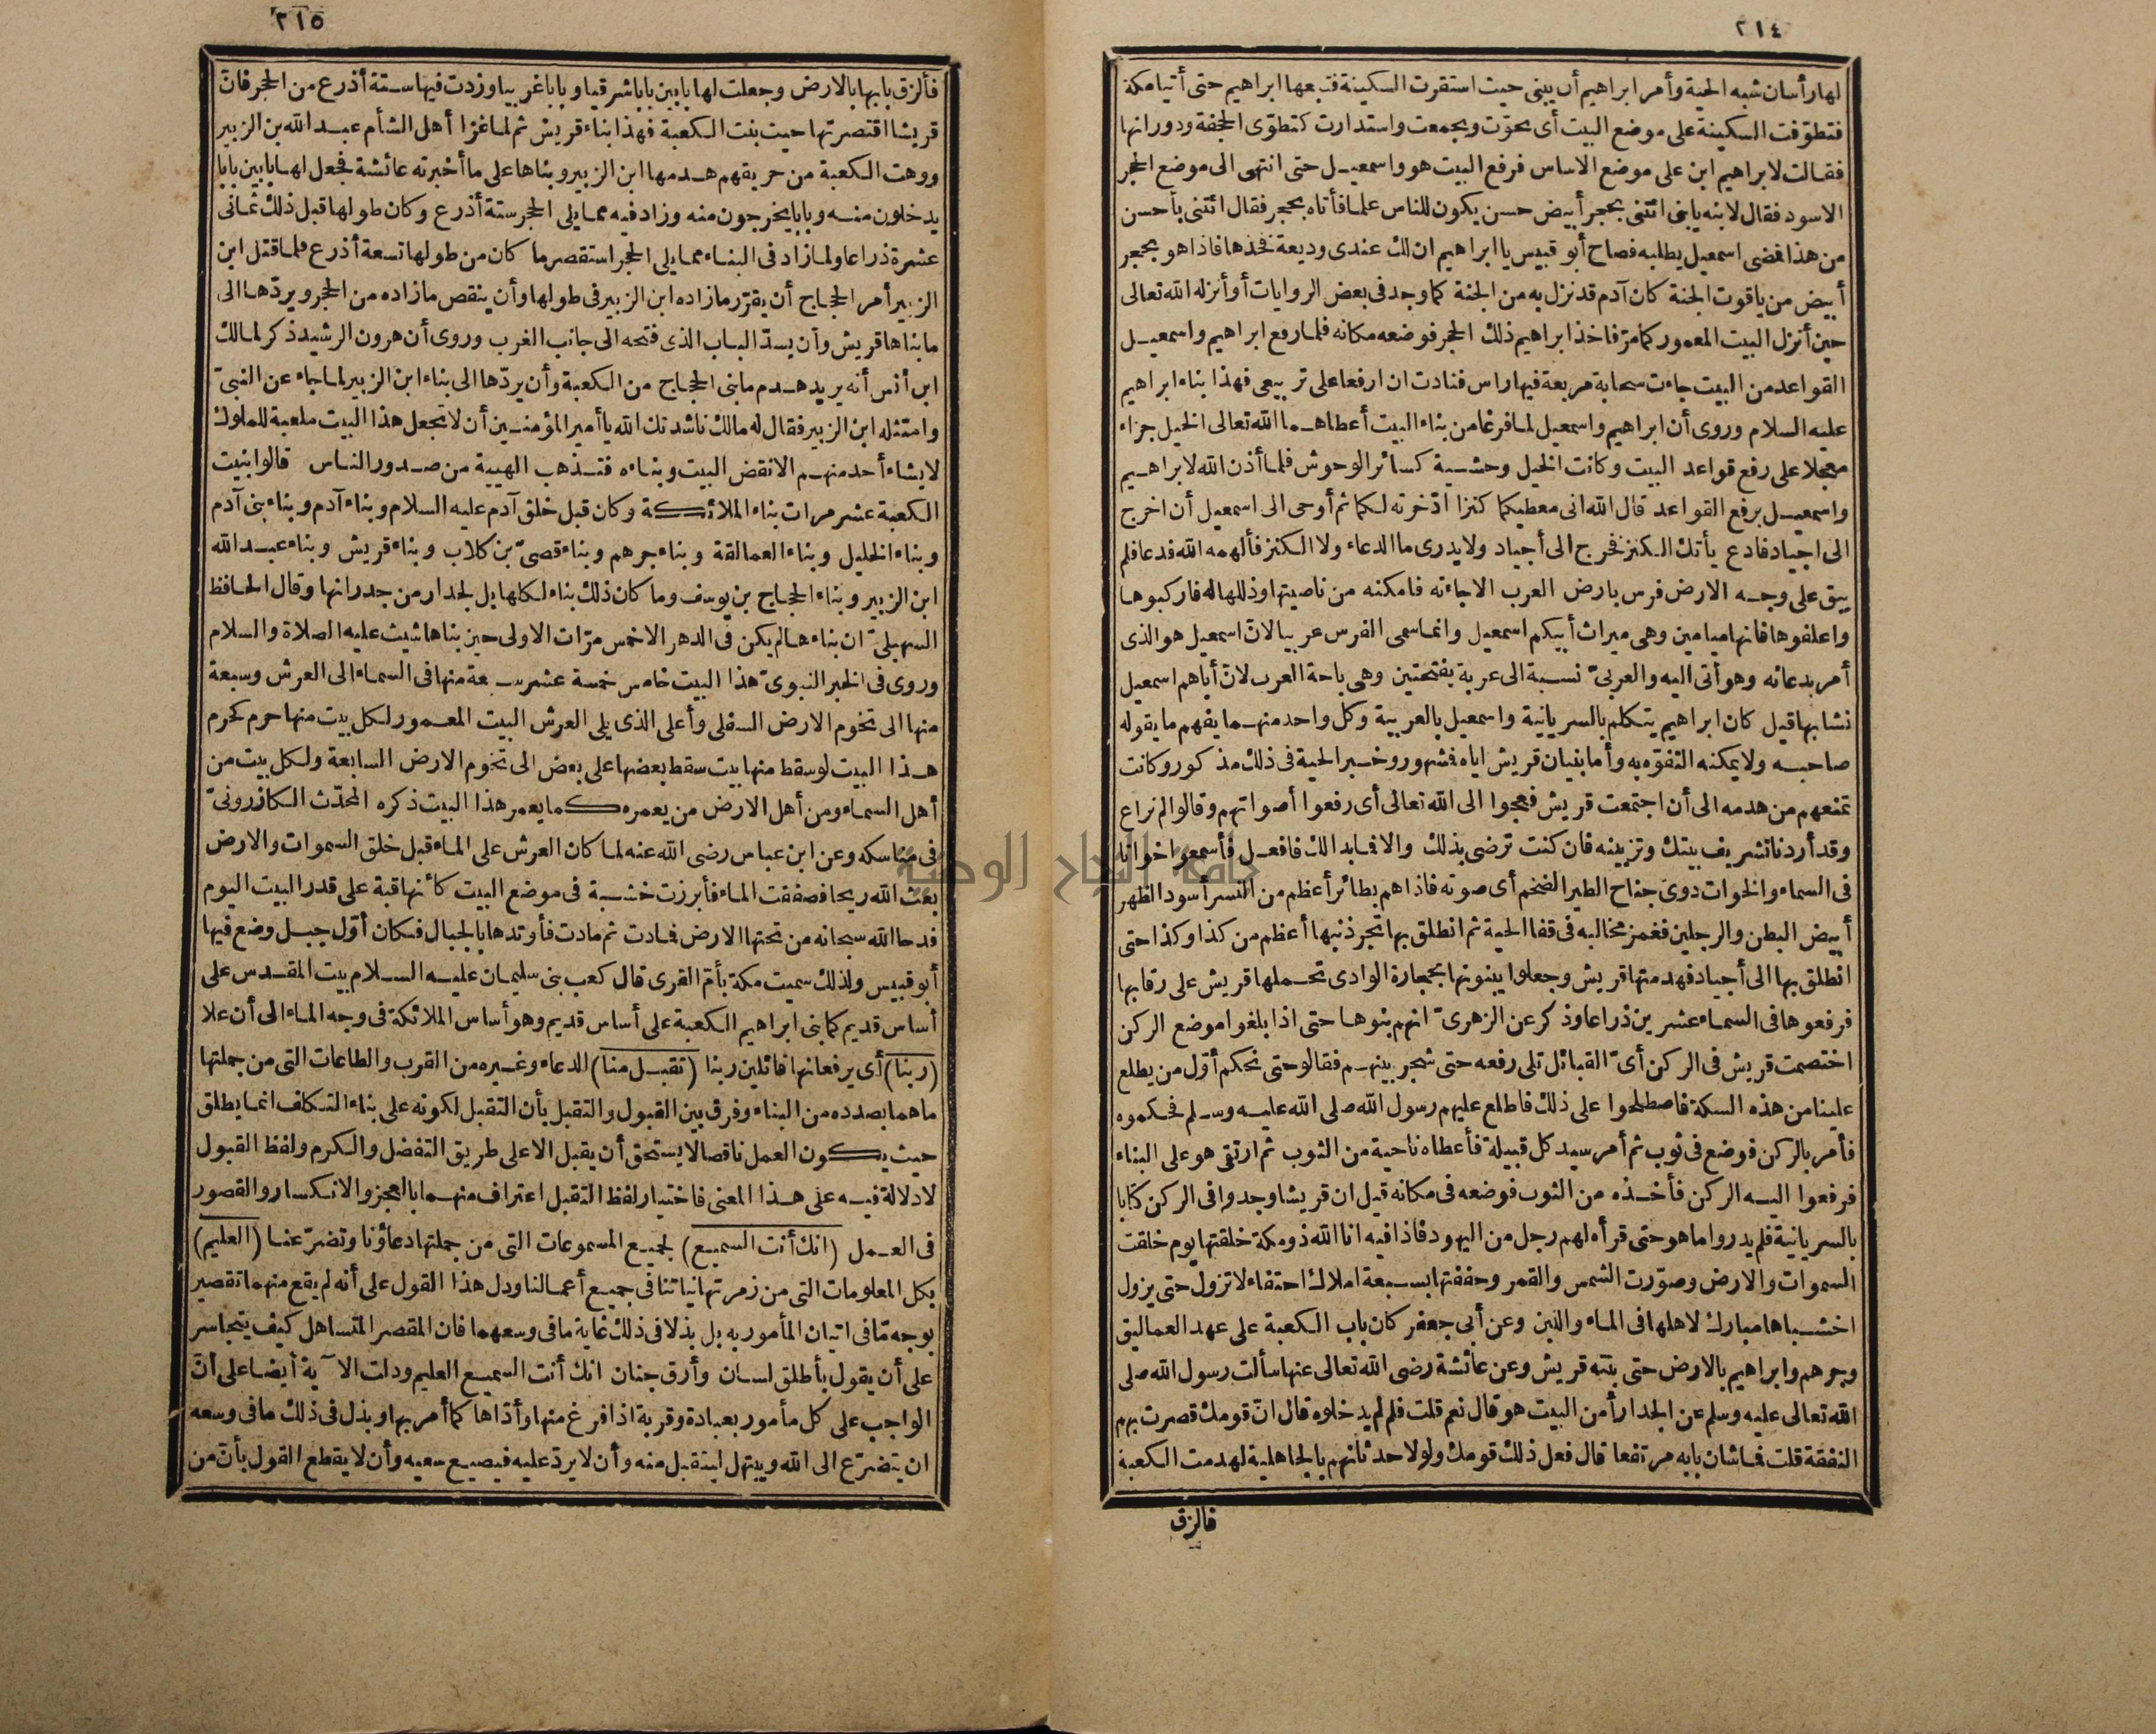 ٢١٤
لها رأسان شبه الحية وأمر ابراهيم أن يبنى حيث استقرت السكينة فتبعها ابراهيم حتى أتيا مكة
فتطوّفت السكينة على موضع البيت أى تحوّت وتجمعت واستدارت كتطوّى الحجفة ودورانها
فقالت لابراهيم ابن على موضع الاساس فرفع البيت هو واسمعيل حتى انتهى الى موضع الحجر
الاسود فقال لابنه يابنى ائتنى بحجر أبيض حسن يكون للناس علما فأتاه بحجر فقال ائتنى بأحسن
من هذا فمضى اسمعيل يطلبه فصاح أبو قبيس يا ابراهيم ان لك عندى وديعة فخذها فاذا هو بحجر
أبيض من ياقوت الجنة كان آدم قد نزل به من الجنة كما وجد فى بعض الروايات أو أنزله الله تعالى
حين أنزل البيت المعمور كما مرّ فاخذ ابراهيم ذلك الحجر فوضعه مكانه فلما رفع ابراهيم واسمعيل
القواعد من البيت جاءت سحابة مربعة فيها راس فنادت ان ارفعا على تربيعى فهذا بناء ابراهيم
عليه السلام وروى أن ابراهيم واسمعيل لما فرغا من بناء البيت أعطاهما الله تعالى الخيل جزاء
معجلا على رفع قواعد البيت وكانت الخيل وحشية كسائر الوحوش فلما أذن الله لابراهيم
واسمعيل برفع القواعد قال الله انى معطيكما كنزا ادّخرته لكما ثم أوحى الى اسمعيل أن اخرج
الى اجياد فادع يأتك الكنز فخرج الى أجياد ولا يدرى ما الدعاء ولا الكنز فألهمه الله فدعا فلم
يبق على وجه الارض فرس بارض العرب الا جاءته فامكنه من ناصيتها وذللها له فاركبوها
واعلفوها فانها ميامين وهى ميراث أبيكم اسمعيل وانما سمى الفرس عربيا لانّ اسمعيل هو الذى
أمر بدعائه وهو أتى اليه والعربىّ نسبة الى عربة بفتحتين وهى باحة العرب لانّ أباهم اسمعيل
نشا بها قيل كان ابراهيم يتكلم بالسريانية واسمعيل بالعربية وكل واحد منهما يفهم ما يقوله
صاحبه ولا يمكنه التفوّه به وأما بنيان قريش اياه فمشهور وخبر الحية فى ذلك مذكور وكانت
تمنعهم من هدمه الى أن اجتمعت قريش فعجوا الى الله تعالى أى رفعوا أصواتهم وقالوا لم نراع
وقد أردنا تشريف بيتك وتزيينه فان كنت ترضى بذلك والا فما بدا لك فافعل فأسمعوا خواتا
فى السماء والخوات دوىّ جناح الطير الضخم أى صوته فاذا هم بطائر أعظم من النسر أسود الظهر
أبيض البطن والرجلين فغمز مخالبه فى قفا الحية ثم انطلق بها تجر ذنبها أعظم من كذا وكذا حتى
انطلق بها الى أجياد فهدمتها قريش وجعلوا يبنونها بحجارة الوادى تحملها قريش على رقابها
فرفعوها فى السماء عشرين ذراعا وذكر عن الزهرىّ انهم بنوها حتى اذا بلغوا موضع الركن
اختصمت قريش فى الركن أىّ القبائل تلى رفعه حتى شجر بينهم فقالوا حتى نحكم أوّل من يطلع
علينا من هذه السكة فاصطلحوا على ذلك فاطلع عليهم رسول الله صلى الله عليه وسلم فحكموه
فأمر بالركن فوضع فى ثوب ثم أمر سيد كل قبيلة فأعطاه ناحية من الثوب ثم ارتقى هو على البناء
فرفعوا اليه الركن فأخذه من الثوب فوضعه فى مكانه قيل ان قريشا وجدوا فى الركن كتابا
بالسريانية فلم يدروا ما هو حتى قرأه لهم رجل من اليهود فاذا فيه انا الله ذو مكة خلقتها يوم خلقت
السموات والارض وصوّرت الشمس والقمر وحففتها بسبعة املاك احتفاء لا تزول حتى يزول
اخشباها مبارك لاهلها فى الماء واللبن وعن أبى جعفر كان باب الكعبة على عهد العماليق
وجرهم وابراهيم بالارض حتى بنته قريش وعن عائشة رضى الله تعالى عنها سألت رسول الله صلى
الله تعالى عليه وسلم عن الجدار أمن البيت هو قال نعم قلت فلم لم يدخلوه قال انّ قومك قصرت بهم
النفقة قلت فما شان بابه مرتفعا قال فعل ذلك قومك ولولا حدثانهم بالجاهلية لهدمت الكعبة
فالزق
٢١٥
فألزق بابها بالارض وجعلت لها بابين بابا شرقيا وبابا غربيا وزدت فيها ستة أذرع من الحجر فانّ
قريشا اقتصرتها حيث بنت الكعبة فهذا بناء قريش ثم لما غزا أهل الشأم عبد الله بن الزبير
ووهت الكعبة من حريقهم هدمها ابن الزبير وبناها على ما أخبرته عائشة فجعل لها بابين بابا
يدخلون منه وبابا يخرجون منه وزاد فيه مما يلى الحجر ستة أذرع وكان طولها قبل ذلك ثمانى
عشرة ذراعا ولما زاد فى البناء مما يلى الحجر استقصر ما كان من طولها تسعة أذرع فلما قتل ابن
الزبير أمر الحجاج أن يقرّر ما زاده ابن الزبير فى طولها وأن ينقص ما زاده من الحجر ويردّها الى
ما بناها قريش وأن يسدّ الباب الذى فتحه الى جانب الغرب وروى أن هرون الرشيد ذكر لمالك
ابن أنس أنه يريد هدم ما بنى الحجاج من الكعبة وأن يردّها الى بناء ابن الزبير لما جاء عن النبىّ
وامتثله ابن الزبير فقال له مالك ناشدتك الله يا أمير المؤمنين أن لا تجعل هذا البيت ملعبة للملوك
لا يشاء أحد منهم الا نقض البيت وبناه فتذهب الهيبة من صدور الناس قالوا بنيت
الكعبة عشر مرات بناء الملائكة وكان قبل خلق آدم عليه السلام وبناء آدم وبناء بنى آدم
وبناء الخليل وبناء العمالقة وبناء جرهم وبناء قصىّ بن كلاب وبناء قريش وبناء عبد الله
ابن الزبير وبناء الحجاج بن يوسف وما كان ذلك بناء لكلها بل لجدار من جدرانها وقال الحافظ
السهيلىّ ان بناءها لم يكن فى الدهر الا خمس مرّات الاولى حين بناها شيث عليه الصلاة والسلام
وروى فى الخبر النبوىّ هذا البيت خامس خمسة عشر سبعة منها فى السماء الى العرش وسبعة
منها الى تخوم الارض السفلى وأعلى الذى يلى العرش البيت المعمور لكل بيت منها حرم كحرم
هذا البيت لو سقط منها بيت سقط بعضها على بعض الى تخوم الارض السابعة ولكل بيت من
أهل السماء ومن أهل الارض من يعمره كما يعمر هذا البيت ذكره المحدّث الكازرونىّ
فى مناسكه وعن ابن عباس رضى الله عنه لما كان العرش على الماء قبل خلق السموات والارض
بعث الله ريحا فصفقت الماء فأبرزت خشبة فى موضع البيت كأنها قبة على قدر البيت اليوم
فدحا الله سبحانه من تحتها الارض فمادت ثم مادت فأوتدها بالجبال فكان أوّل جبل وضع فيها
أبو قبيس ولذلك سميت مكة بأمّ القرى قال كعب بنى سليمان عليه السلام بيت المقدس على
أساس قديم كما بنى ابراهيم الكعبة على أساس قديم وهو أساس الملائكة فى وجه الماء الى أن علا
(ربنا) أى يرفعانها قائلين ربنا (تقبل منا) الدعاء وغيره من القرب والطاعات التى من جملتها
ما هما بصدده من البناء وفرق بين القبول والتقبل بأن التقبل لكونه على بناء التكلف انما يطلق
حيث يكون العمل ناقصا لا يستحق أن يقبل الا على طريق التفضل والكرم ولفظ القبول
لا دلالة فيه على هذا المعنى فاختيار لفظ التقبل اعتراف منهما بالعجز والانكسار والقصور
فى العمل (انك أنت السميع) لجميع المسموعات التى من جملتها دعاؤنا وتضرّعنا (العليم)
بكل المعلومات التى من زمرتها نياتنا فى جميع أعمالنا ودل هذا القول على أنه لم يقع منهما تقصير
بوجه مّا فى اتيان المأمور به بل بذلا فى ذلك غاية ما فى وسعهما فان المقصر المتساهل كيف يتجاسر
على أن يقول بأطلق لسان وأرق جنان انك أنت السميع العليم ودلت الآية أيضا على أنّ
الواجب على كل مأمور بعبادة وقربة اذا فرغ منها وأدّاها كما أمر بها وبذل فى ذلك ما فى وسعه
ان يتضرّع الى الله ويبتهل ليتقبل منه وأن لا يردّ عليه فيضيع سعيه وأن لا يقطع القول بأنّ من
جامعة النجاح الوطنية